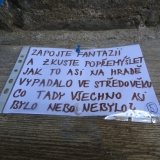 ZAPOJTE FANTAZII
A ZKUSTE POPŘEMÝŠLET
JAK TO ASI NA HRADĚ
VYPADALO VE STŘEDOVĚKU
CO TADY VŠECHNO
BYLO NEBO NEBYLO?